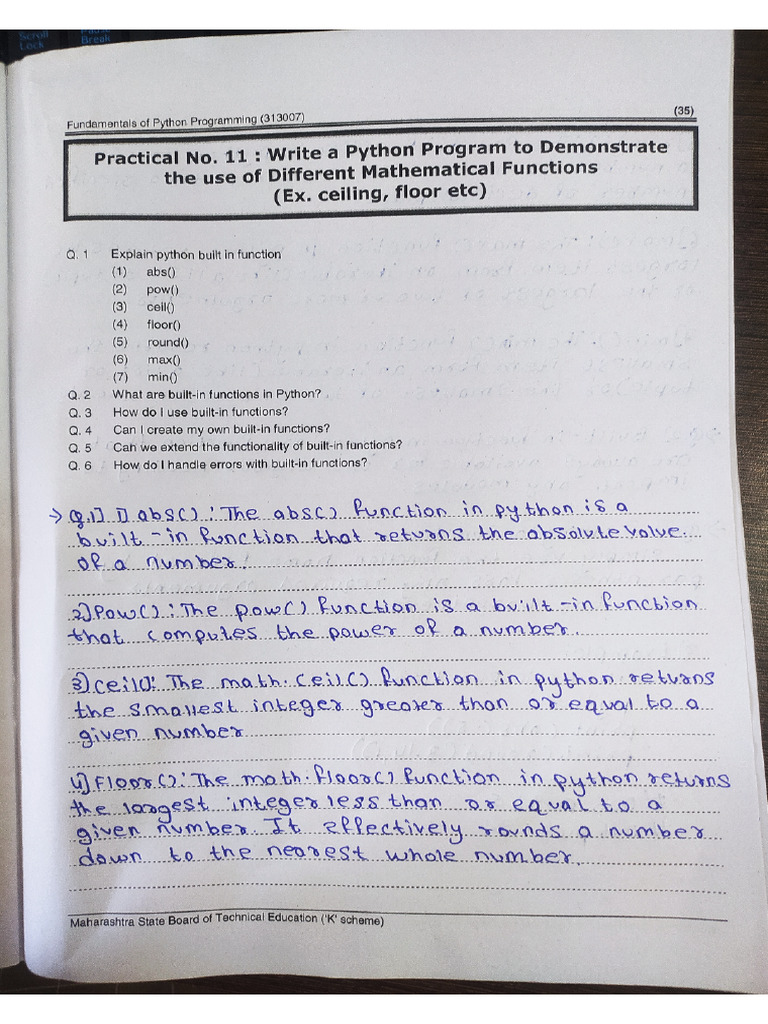 Scroll
Lock
Pause
Break
Fundamentals of Python Programming (313007)
(35)
Practical No. 11 : Write a Python Program to Demonstrate
the use of Different Mathematical Functions
(Ex. ceiling, floor etc)
Q. 1 Explain python built in function
(1) abs()
(2) pow()
(3) ceil()
(4) floor()
(5) round()
(6) max()
(7) min()
Q. 2 What are built-in functions in Python?
Q. 3 How do I use built-in functions?
Q. 4 Can I create my own built-in functions?
Q. 5 Can we extend the functionality of built-in functions?
Q. 6 How do I handle errors with built-in functions?
→ Q.1] 1] abs() : The abs() function in python is a
built-in function that returns the absolute value.
of a number.
2) Pow() : The pow() function is a built-in function
that computes the power of a number.
3) ceil(): The math.ceil() function in python returns
the smallest integer greater than or equal to a
given number
4) Floor() : The math.floor() function in python returns
the largest integer less than or equal to a
given number. It effectively rounds a number
down to the nearest whole number.
Maharashtra State Board of Technical Education ('K' scheme)